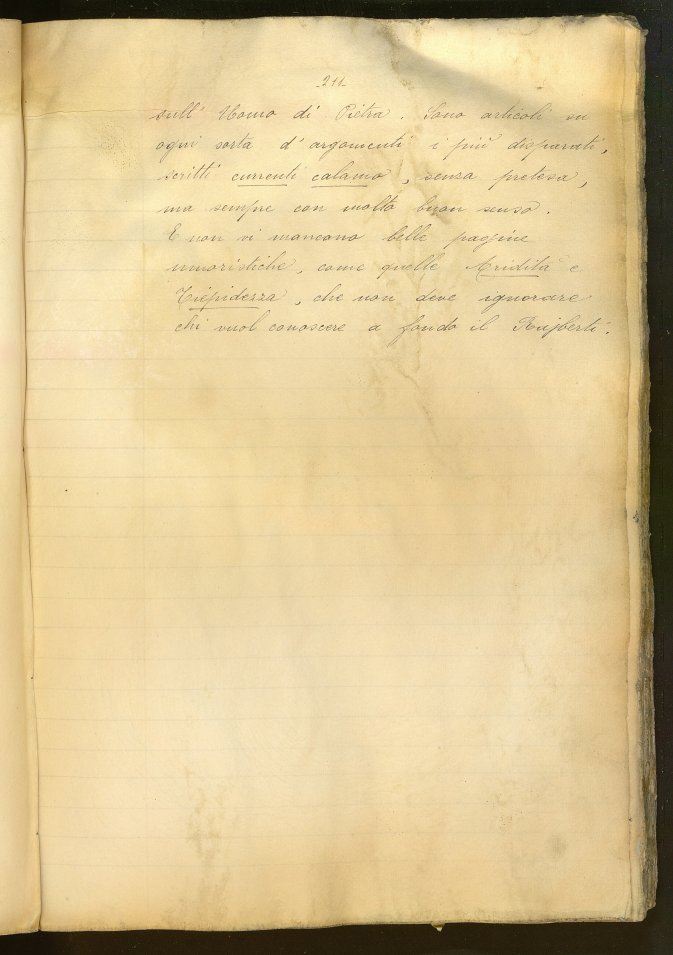 211
sull' Uomo di Pietra. Sono articoli su
ogni sorta d'argomenti i più disparati,
scritti currenti calamo, senza pretesa,
ma sempre con molto buon senso.
E non vi mancano belle pagine
umoristiche, come quelle Aridità e
Tiepidezza, che non deve ignorare
chi vuol conoscere a fondo il Rajberti.